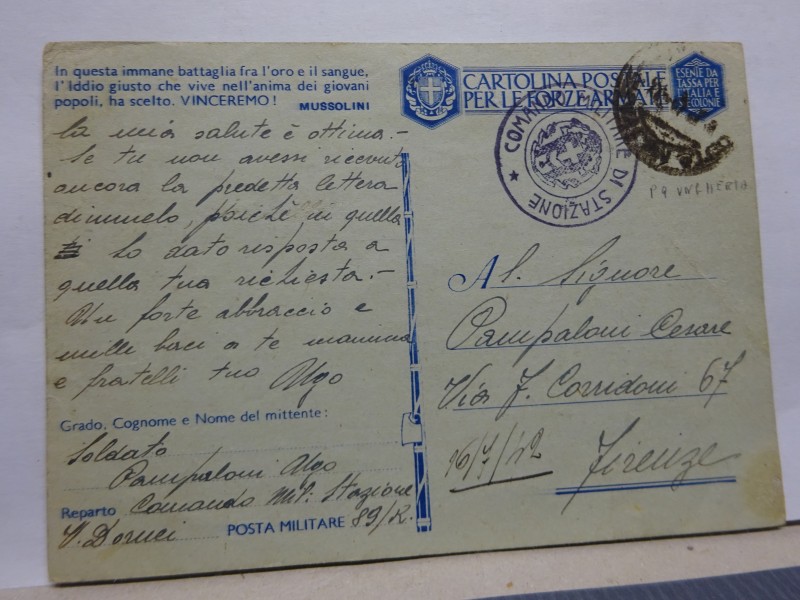 In questa immane battaglia fra l'oro e il sangue,
l'Iddio giusto che vive nell'anima dei giovani
popoli, ha scelto. VINCEREMO! MUSSOLINI
la mia salute è ottima.-
Se tu non avessi ricevuto
ancora la predetta lettera
dimmelo, poiché in quella
ti ho dato risposta a
quella tua richiesta.-
Un forte abbraccio e
mille baci a te mamma
e fratelli tuo Ugo
Grado, Cognome e Nome del mittente:
Soldato
Pampaloni Ugo
Reparto Comando Mil. Stazione
V. Dornei POSTA MILITARE 89/R.
CARTOLINA POSTALE
PER LE FORZE ARMATE
ESENTE DA
TASSA PER
L'ITALIA E
COLONIE
★ COMANDO MILITARE DI STAZIONE
Al Signore
Pampaloni Cesare
Via F. Corridoni 67
16/7/42 Firenze